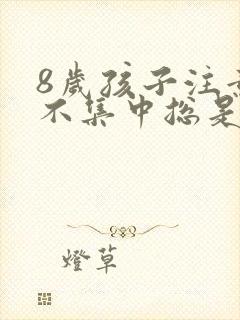 8歲孩子注意
不集中總是
燈草